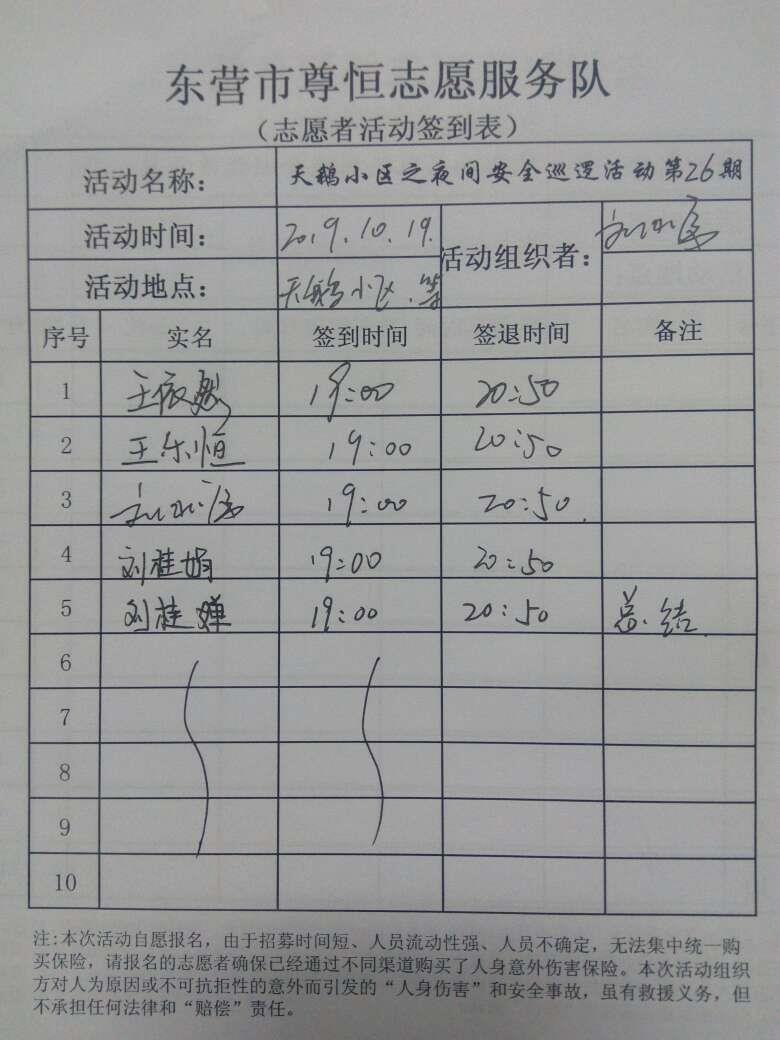 东营市尊恒志愿服务队
（志愿者活动签到表）
活动名称： 天鹅小区之夜间安全巡逻活动第26期
活动时间： 2019.10.19. 活动组织者：
活动地点： 天鹅小区.等
序号 实名 签到时间 签退时间 备注
1 王 19:00 20:50
2 王乐恒 19:00 20:50
3 19:00 20:50.
4 刘桂娟 19:00 20:50
5 刘桂婵 19:00 20:50 总结.
6
7
8
9
10
注:本次活动自愿报名，由于招募时间短、人员流动性强、人员不确定，无法集中统一购
买保险，请报名的志愿者确保已经通过不同渠道购买了人身意外伤害保险。本次活动组织
方对人为原因或不可抗拒性的意外而引发的“人身伤害”和安全事故，虽有救援义务，但
不承担任何法律和“赔偿”责任。